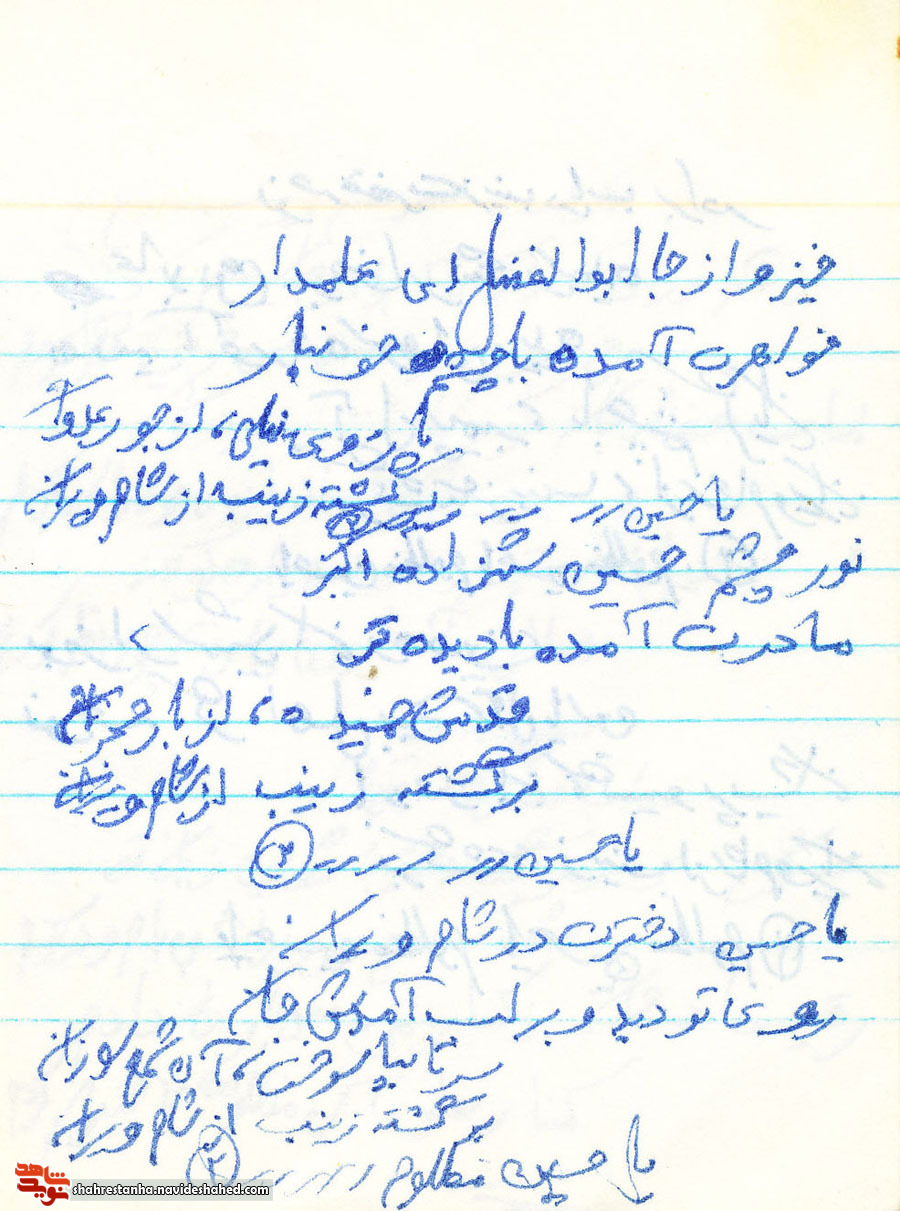 خیز و از جا ابوالفضل ای علمدار
خواهرت آمده با چشم خونبار
با روی نیلی، از جور عدوان
برگشته زینب از شام ویران
یا حسین
نور چشم حسین شهزاده اکبر
مادرت آمده با دیده تر
قدش خمیده، از بار هجران
برگشته زینب از شام ویران
یا حسین ۳
یا حسین دخترت در شام ویران
روی تو دید و بر لب آمدش جان
تا پا سوخت، آن شمع سوزان
برگشته زینب از شام ویران
یا حسین مظلوم
نوید شاهد
shahrestanha.navideshahed.com